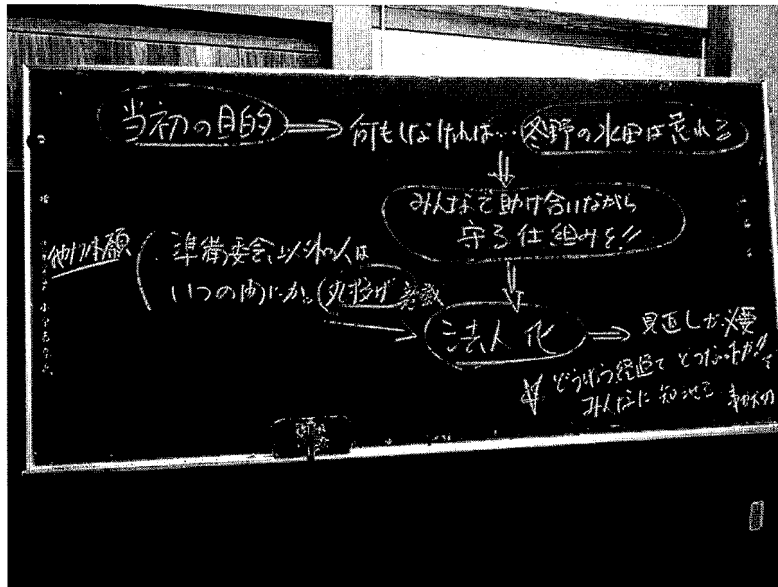 当初の目的 ⇒ 何もしなければ… 冬野の水田は荒れる
みんなで助け合いながら
守る仕組みを!!
他力本願
準備委会以外の人は
いつの間にか 丸投げ 意識
法人化 ⇒ 見直しが必要
どういう経過で どうなったか
みんなに知らせる